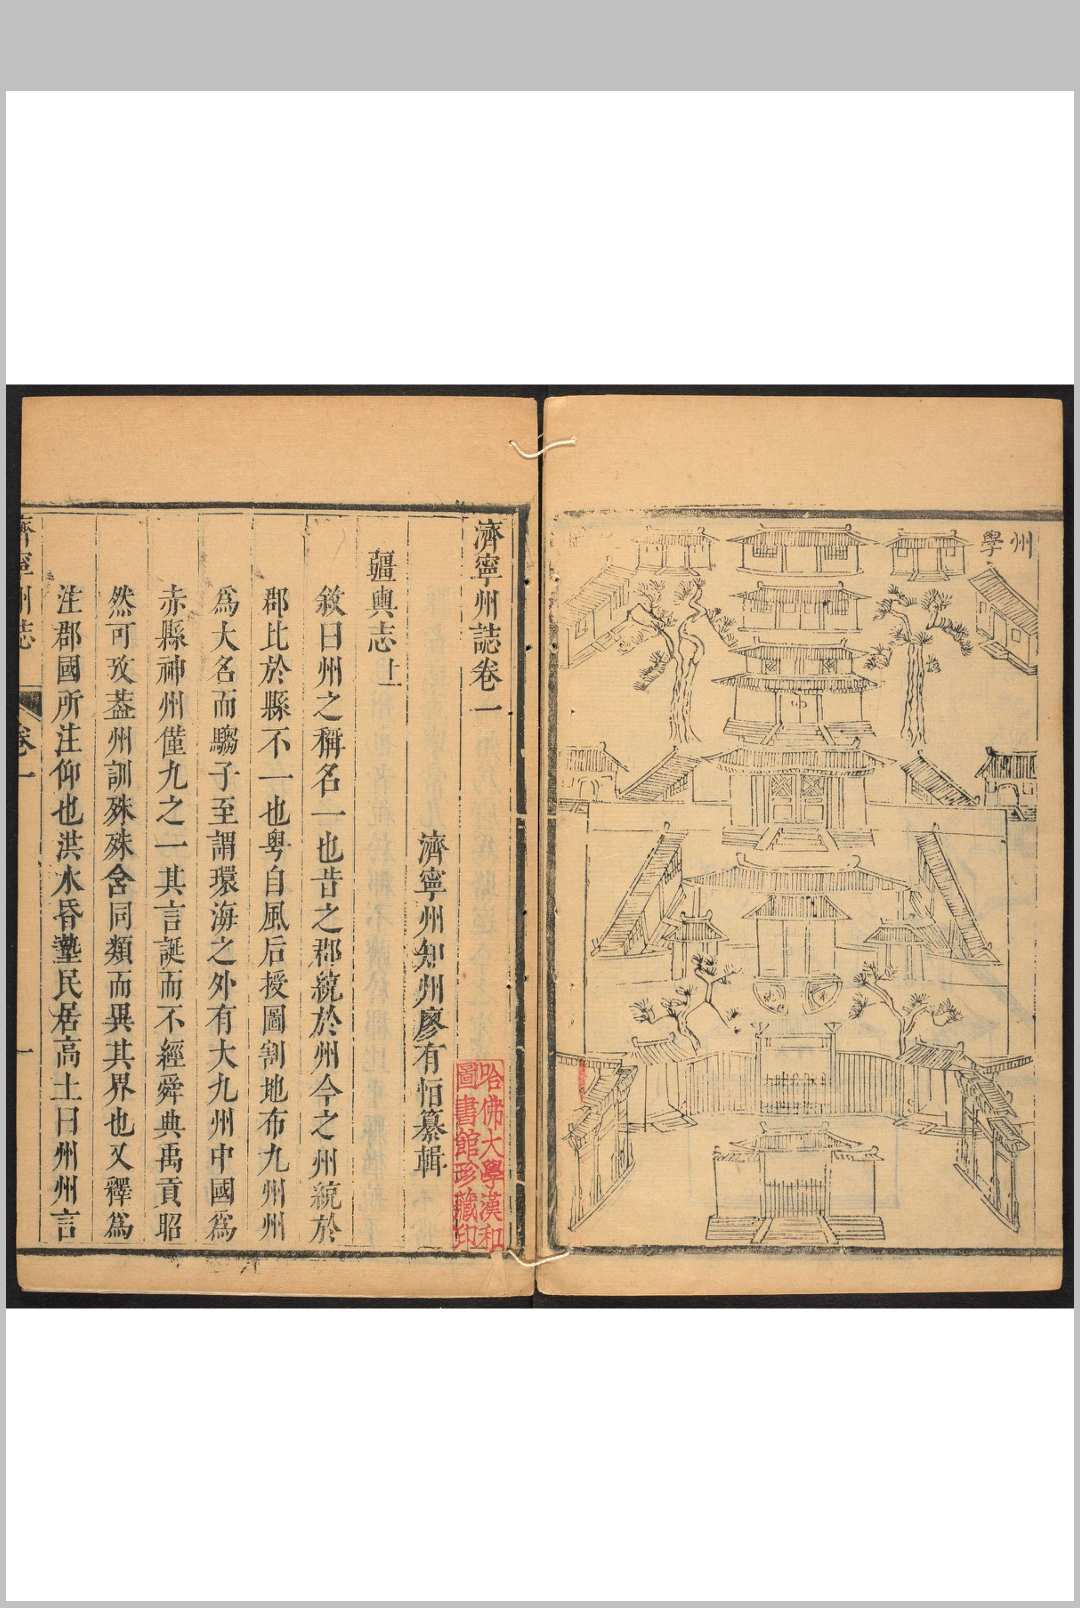 州學
濟寧州誌卷一
濟寧州知州廖有恒纂輯
疆輿志上
敘曰州之稱名一也昔之郡統於州今之州統於
郡比於縣不一也粤自風后授圖割地布九州州
爲大名而騶子至謂環海之外有大九州中國爲
赤縣神州僅九之一其言誕而不經舜典禹貢昭
然可攷葢州訓殊殊舍同類而異其界也又釋爲
注郡國所注仰也洪水昏墊民居高土曰州州言
濟寧州誌
卷一
一
哈佛大學漢和
圖書館珍藏印